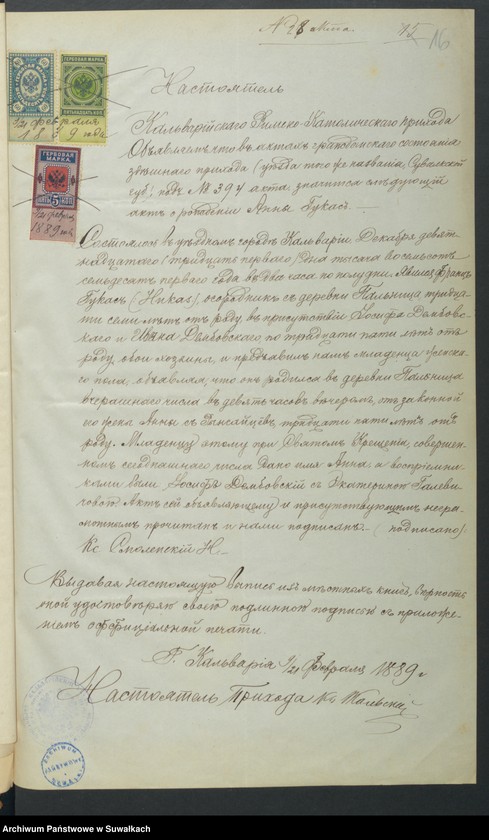 № 28 15 16
ГЕРБОВАЯ МАРКА
ГЕРБОВАЯ МАРКА
5 КОП
9/21 февраля
1889 года
9/21 февр.
1889 года
Настоятель
Кальварійскаго Римско-Католическаго прихода
Объявляетъ что въ актахъ гражданскаго состоянія
здешняго прихода (уезда того же названія, Сувалкской
губ.) подъ № 394 акта, значится следующій
актъ о рожденіи Анны Букасъ. —
Состоялся въ уездномъ городе Кальваріи Декабря девят-
надцатаго (тридцать перваго) дня тысяча восемьсотъ
семьдесятъ перваго года въ два часа по полудни. Явился Францъ
Букасъ, огородникъ съ деревни тридца-
ти семи летъ отъ роду, въ присутствіи Іосифа Домбов-
скаго и Домбовскаго по тридцати пяти летъ отъ
роду, обои хозяина, и предъявилъ намъ младенца женска-
го пола, объявляя, что онъ родился въ деревни
вчерашняго числа въ девять часовъ вечеромъ, отъ законной
его жена Анны съ тридцати пяти летъ отъ
роду. Младенцу этому при Святомъ Крещеніи, совершен-
номъ сегоднашняго числа дано имя Анна, а воспріемни-
ками были Іосифъ Домбовскій съ Екатериною Галеви-
човой. Актъ сей объявляющему и присутствующимъ негра-
мотнымъ прочитанъ и нами подписанъ. (подписано)
Кс Смоленскій Н. —
Выдавая настоящую выпись изъ местныхъ книгъ, верность
оной удостоверяю своей подлинной подписью съ приложе-
ніемъ оффиціальной печати.
Г. Кальварія 9/21 Февраля 1889 г.
Настоятель Прихода Кс
ARCHIWUM
Archiwum Państwowe w Suwałkach